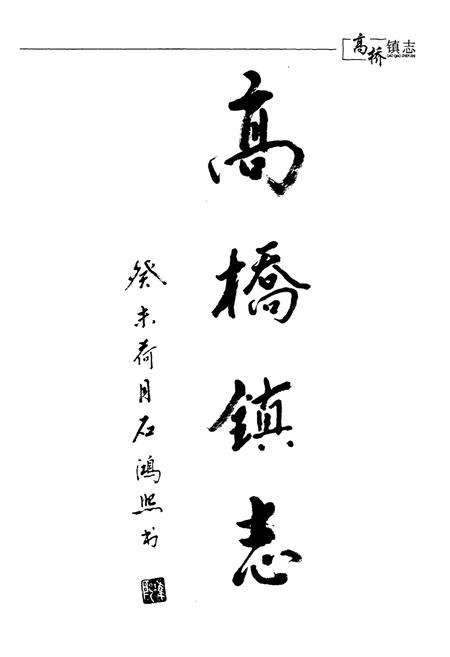 高桥镇志
高橋鎮志
癸未荷月石鴻熙书